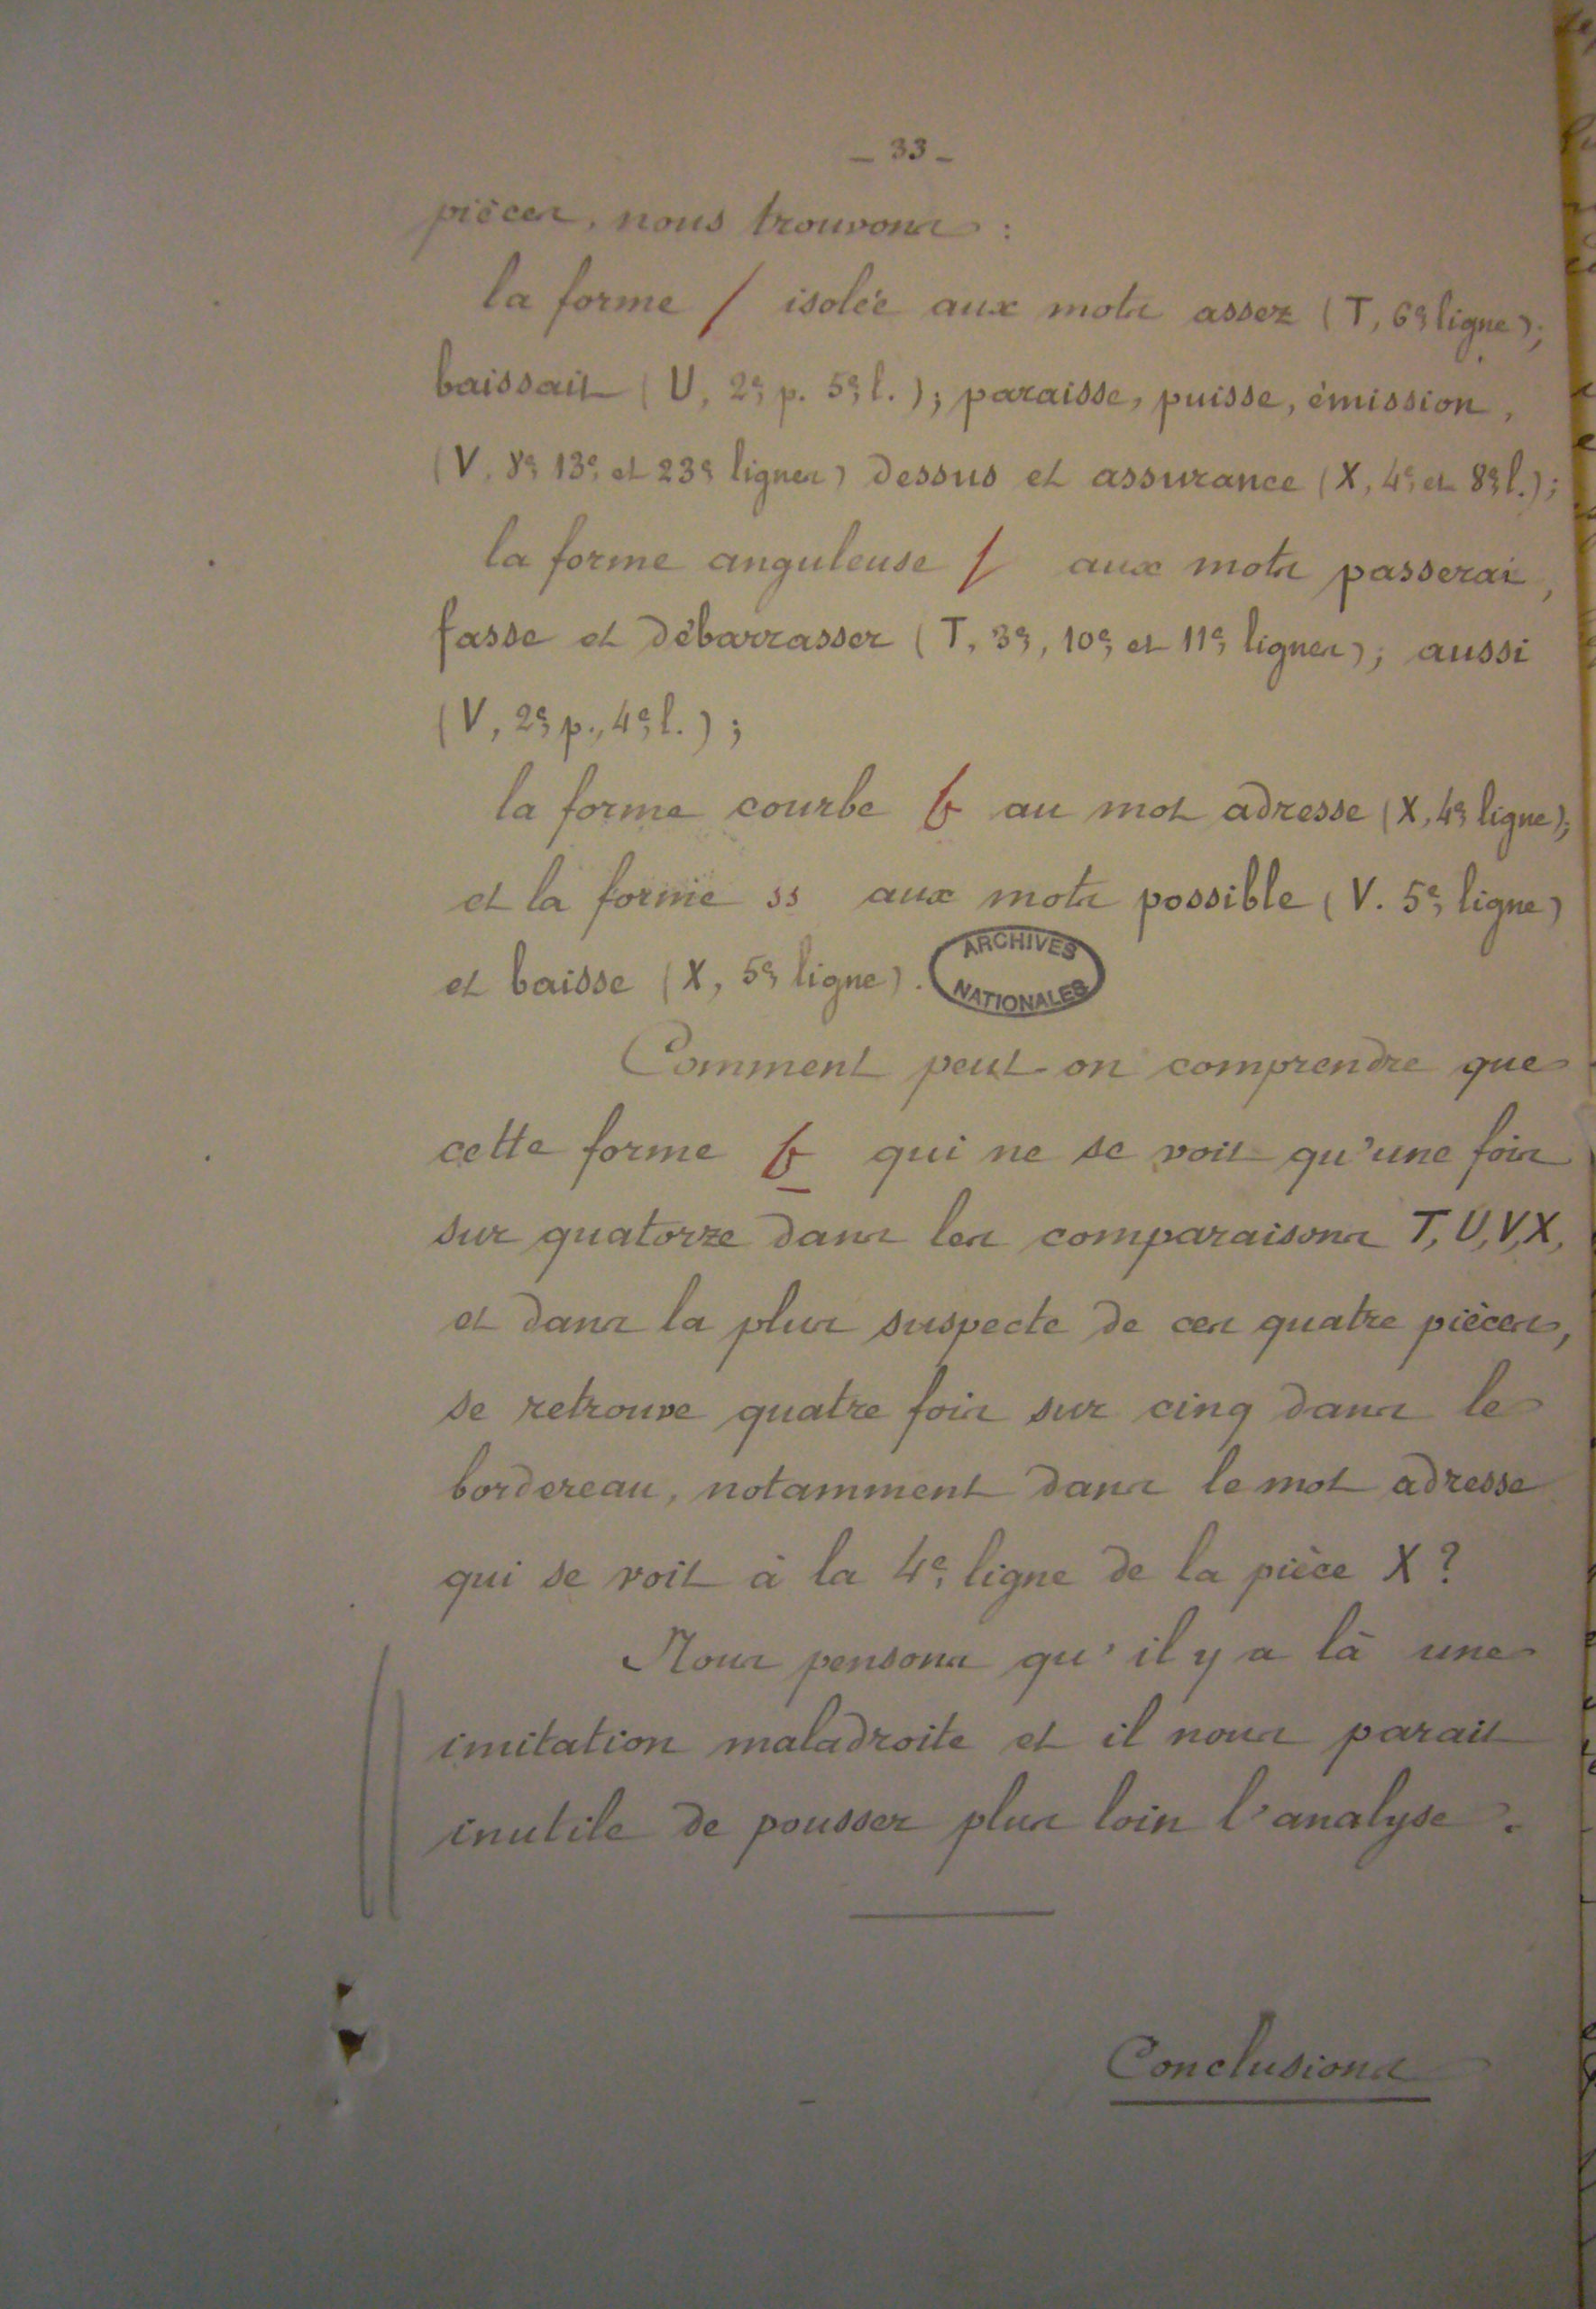 – 33 –
pièces, nous trouvons :
la forme ſ isolée aux mots assez (T, 6e ligne);
baissait (U, 2e p. 5e l.); paraisse, puisse, émission,
(V, 8e, 13e et 23e lignes) dessus et assurance (X, 4e et 8e l.);
la forme anguleuse ſ aux mots passerai,
fasse et débarrasser (T, 3e, 10e et 11e lignes); aussi
(V, 2e p., 4e l.);
la forme courbe au mot adresse (X, 4e ligne);
et la forme ss aux mots possible (V. 5e ligne)
et baisse (X, 5e ligne).
ARCHIVES
NATIONALES
Comment peut-on comprendre que
cette forme qui ne se voit qu'une fois
sur quatorze dans les comparaisons T, U, V, X,
et dans la plus suspecte de ces quatre pièces,
se retrouve quatre fois sur cinq dans le
bordereau, notamment dans le mot adresse
qui se voit à la 4e ligne de la pièce X ?
Nous pensons qu'il y a là une
imitation maladroite et il nous parait
inutile de pousser plus loin l'analyse.
Conclusions